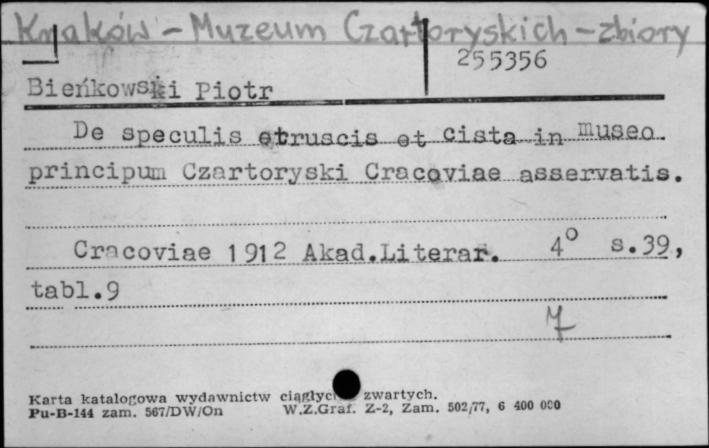 Kraków - Muzeum Czartoryskich - zbiory
255356
Bieńkowski Piotr
De speculis etruscis et cista in museo
principum Czartoryski Cracoviae asservatis.
Cracoviae 1912 Akad.Literar. 4° s.39,
tabl.9
Karta katalogowa wydawnictw zwartych.
Pu-B-144 zam. 567/DW/On W.Z.Graf. Z-2, Zam. 502/77, 6 400 000